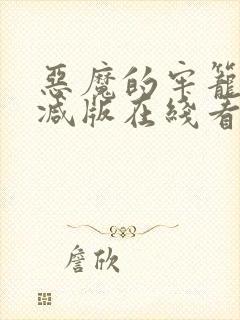 惡魔的牢籠
減版在綫看
詹欣